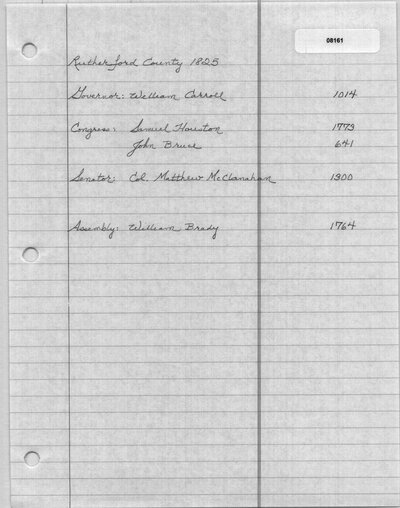 08161
Rutherford County 1825
Governor: William Carroll 1014
Congress: Samuel Houston 1773
John Bruce 641
Senator: Col. Matthew McClanahan 1300
Assembly: William Brady 1764